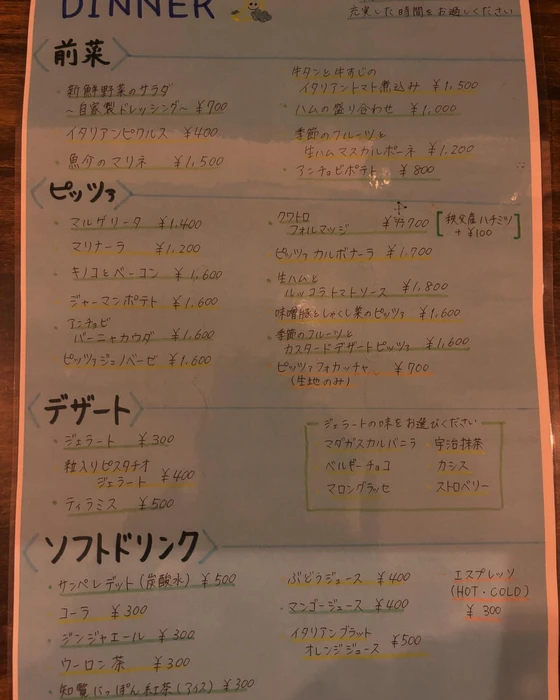 DINNER
充実した時間をお過しください
前菜
新鮮野菜のサラダ
～自家製ドレッシング～ ¥700
イタリアンピクルス ¥400
魚介のマリネ ¥1,500
牛タンと牛すじの
イタリアントマト煮込み ¥1,500
ハムの盛り合わせ ¥1,000
季節のフルーツと
生ハムマスカルポーネ ¥1,200
アンチョビポテト ¥800
ピッツァ
マルゲリータ ¥1,400
マリナーラ ¥1,200
キノコとベーコン ¥1,600
ジャーマンポテト ¥1,600
アンチョビ
バーニャカウダ ¥1,600
ピッツァジェノベーゼ ¥1,600
クワトロ
フォルマッジ
秩父産ハチミツ
+¥100
ピッツァカルボナーラ ¥1,700
生ハムと
ルッコラトマトソース ¥1,800
味噌豚としゃくし菜のピッツァ ¥1,600
季節のフルーツと
カスタードデザートピッツァ ¥1,600
ピッツァフォカッチャ ¥700
(生地のみ)
デザート
ジェラート ¥300
粒入りピスタチオ
ジェラート ¥400
ティラミス ¥500
ジェラートの味をお選びください
マダガスカルバニラ 宇治抹茶
ベルギーチョコ カシス
マロングラッセ ストロベリー
ソフトドリンク
サンペレデット(炭酸水) ¥500
コーラ ¥300
ジンジャエール ¥300
ウーロン茶 ¥300
知覧にっぽん紅茶(アイス) ¥300
ぶどうジュース ¥400
マンゴージュース ¥400
イタリアンブラッド
オレンジジュース ¥500
エスプレッソ
(HOT・COLD)
¥300